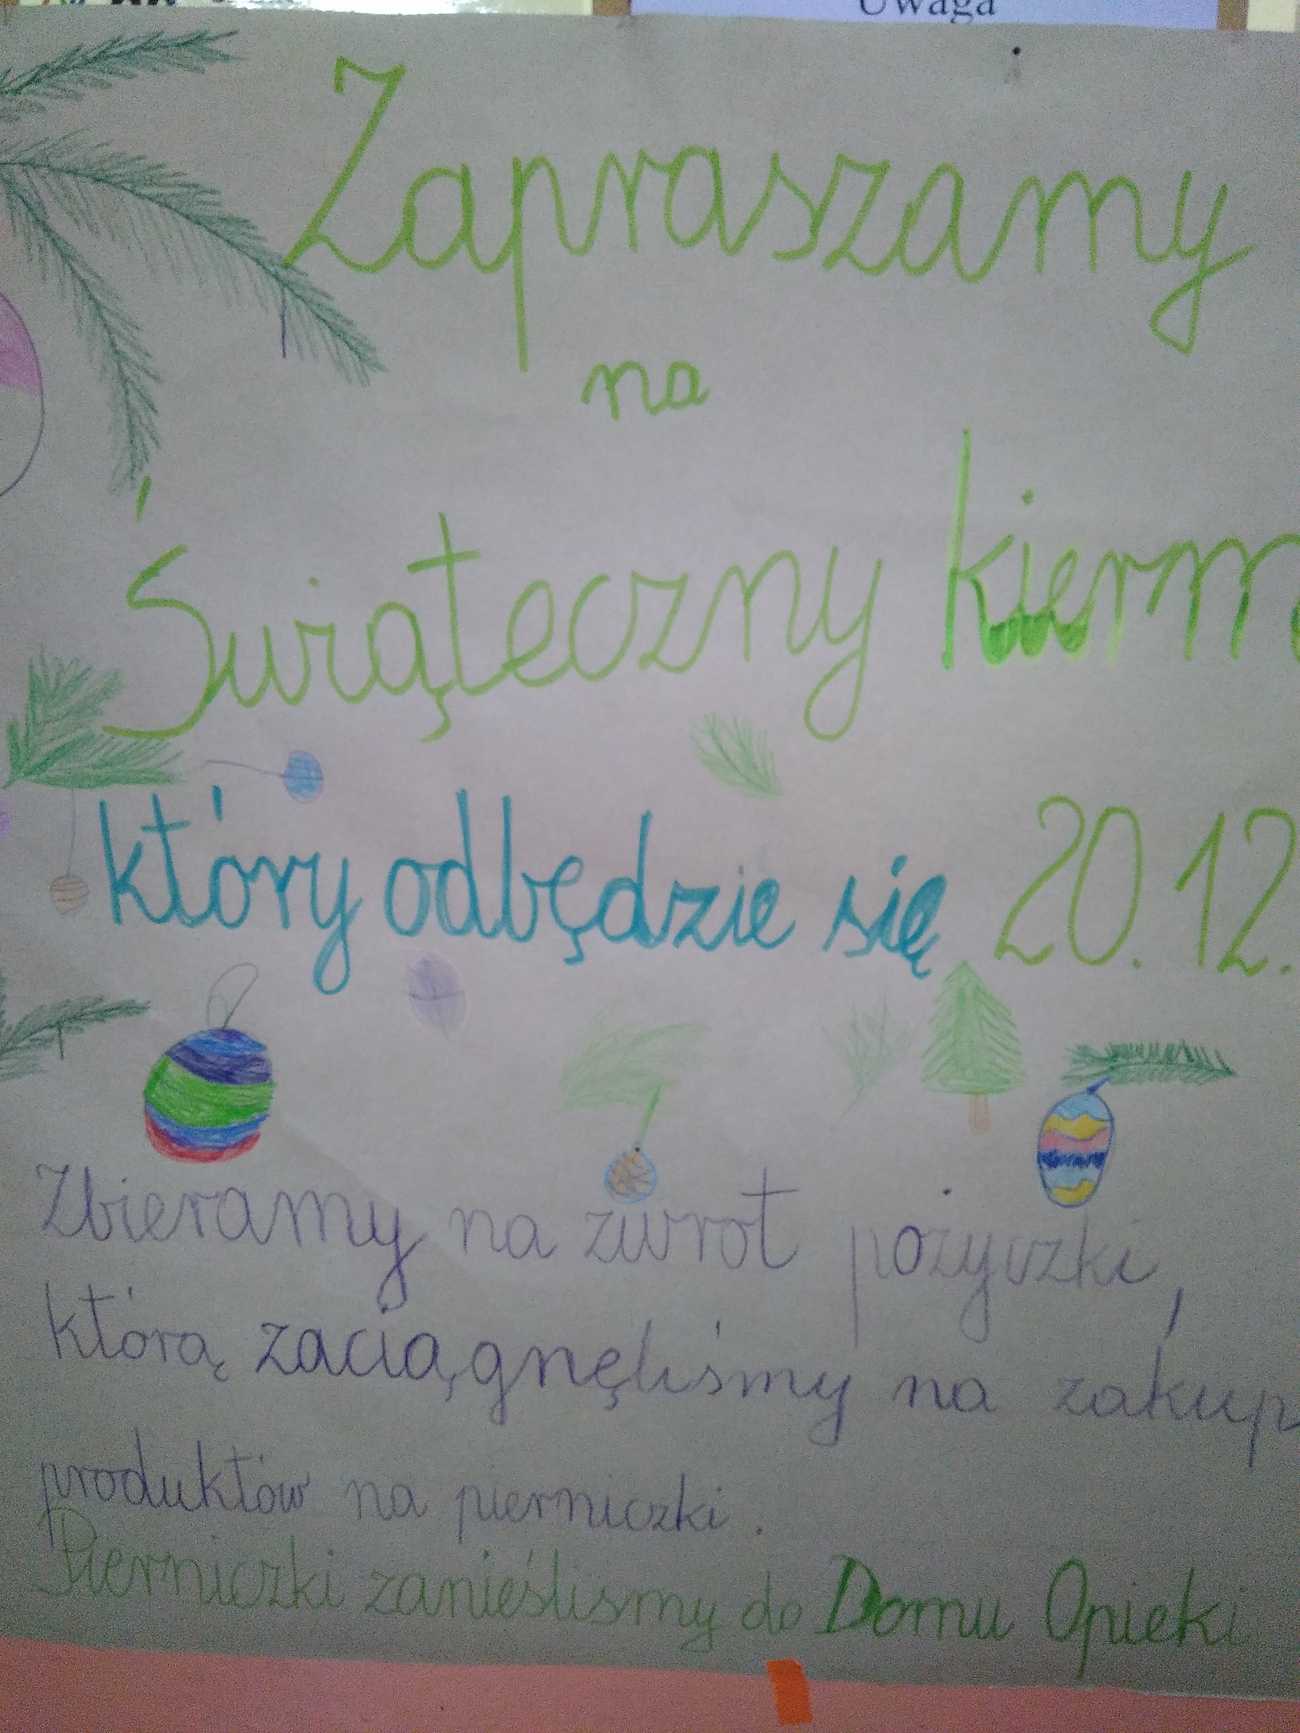 Uwaga
Zapraszamy
na
Świąteczny kierm
który odbędzie się 20.12.
Zbieramy na zwrot pożyczki,
którą zaciągnęliśmy na zakup
produktów na pierniczki.
Pierniczki zanieślismy do Domu Opieki